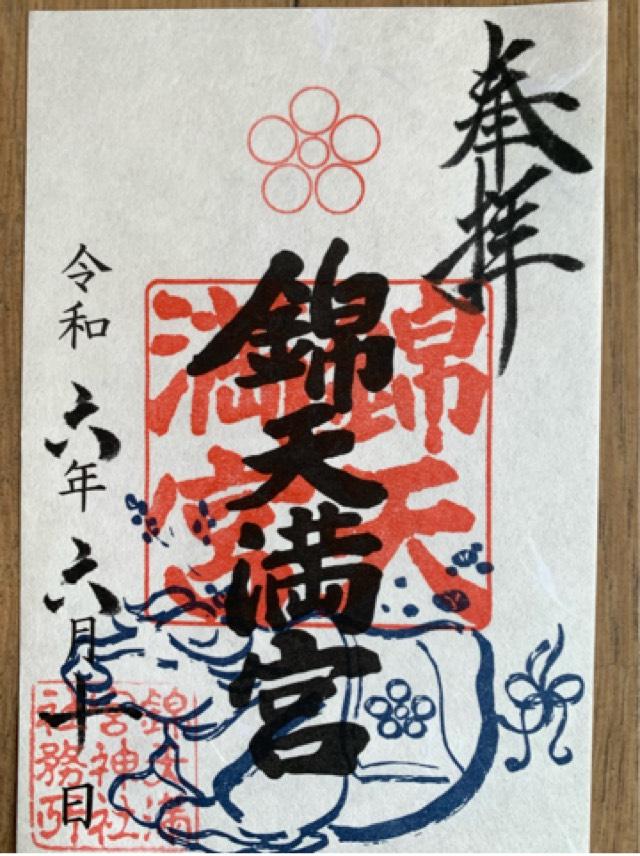 奉拝
錦天満宮
錦天満宮
令和六年六月十日
錦天満宮神社社務所